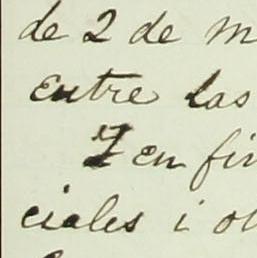 de 2 de m
entre las
I en fir
ciales i ot